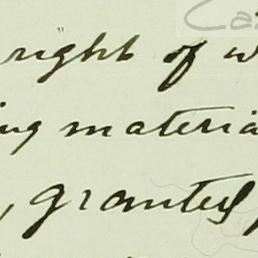 right of w
ing materia
, granted